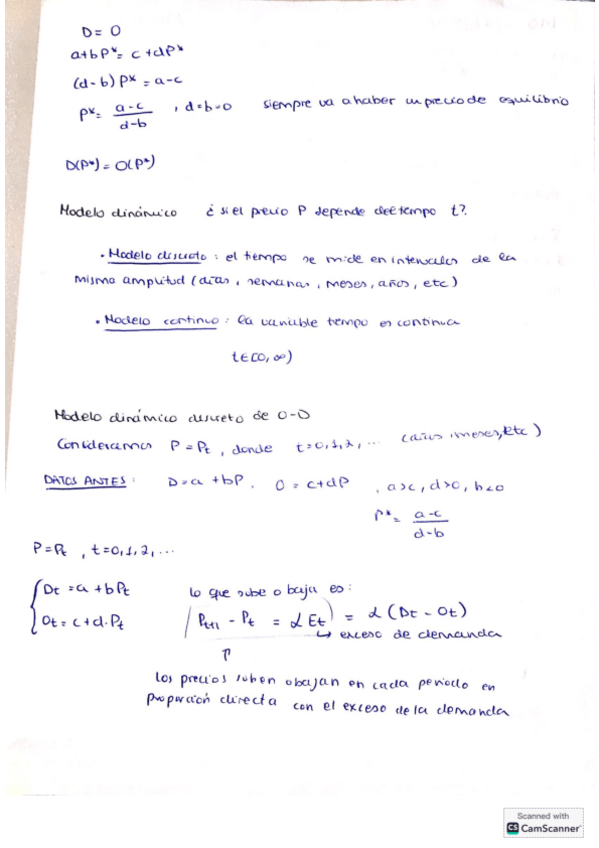 D = O
a+bP* = c+dP*
(d-b) P* = a-c
P* = a-c / d-b , d-b=0 siempre va a haber un precio de equilibrio
D(P*) = O(P*)
Modelo dinámico ¿si el precio P depende del tiempo t?
• Modelo discreto : el tiempo se mide en intervalos de la
misma amplitud (días, semanas, meses, años, etc)
• Modelo continuo : la variable tiempo es continua
t∈[0,∞)
Modelo dinámico discreto de O-D
Consideramos P = Pt , donde t=0,1,2,... (años, meses, etc)
DATOS ANTES : D=a+bP, O = c+dP , a>c, d>0, b<0
P* = a-c / d-b
P=Pt , t=0,1,2,...
Dt = a+bPt lo que sube o baja es:
Ot = c+d·Pt Pt+1 - Pt = α Et = α (Dt - Ot)
↳ exceso de demanda
↑
Los precios suben o bajan en cada periodo en
proporción directa con el exceso de la demanda
Scanned with
CS CamScanner